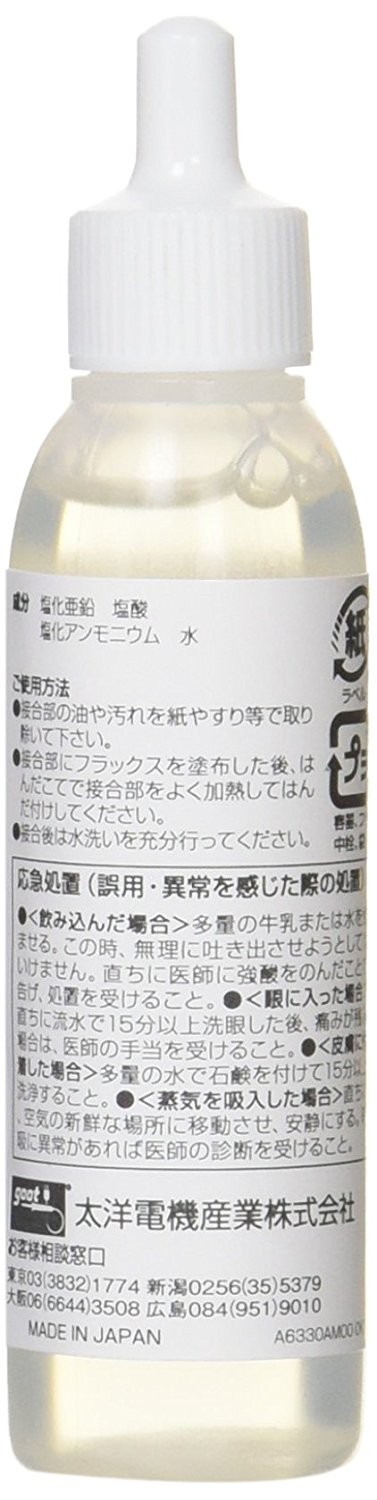 成分 塩化亜鉛 塩酸
塩化アンモニウム 水
紙
ラベル
プラ
ご使用方法
●接合部の油や汚れを紙やすり等で取り
除いて下さい。
●接合部にフラックスを塗布した後、は
んだこてで接合部をよく加熱してはん
だ付けしてください。
●接合後は水洗いを充分行ってください。
容器、フ
中栓、袋
応急処置(誤用・異常を感じた際の処置)
●<飲み込んだ場合>多量の牛乳または水を
ませる。この時、無理に吐き出させようとして
いけません。直ちに医師に強酸をのんだこと
告げ、処置を受けること。●<眼に入った場合
直ちに流水で15分以上洗眼した後、痛みが残
場合は、医師の手当を受けること。●<皮膚に
着した場合>多量の水で石鹸を付けて15分以
洗浄すること。●<蒸気を吸入した場合>直ち
、空気の新鮮な場所に移動させ、安静にする。
吸に異常があれば医師の診断を受けること。
goot 太洋電機産業株式会社
お客様相談窓口
東京03(3832)1774 新潟0256(35)5379
大阪06(6644)3508 広島084(951)9010
MADE IN JAPAN A6330AM00